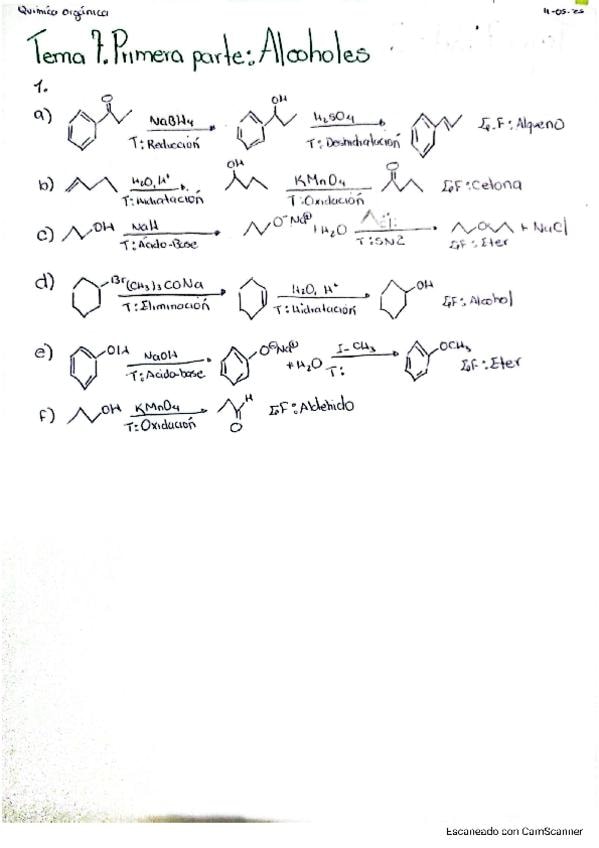 Química orgánica 11-05-25
Tema 7. Primera parte: Alcoholes
1.
a) O NaBH4 T: Reducción OH H2SO4 T: Deshidratación G.F: Alqueno
b) H2O, H+ T: Hidratación OH KMnO4 T: Oxidación O G.F: Cetona
c) OH NaH T: Ácido-Base O⁻Na⊕ + H2O T: SN2 O + NaCl G.F: Eter
d) Br (CH3)3CONa T: Eliminación H2O, H+ T: Hidratación OH G.F: Alcohol
e) OH NaOH T: Acido-base O⊖Na⊕ + H2O I-CH3 T: OCH3 G.F: Eter
f) OH KMnO4 T: Oxidación H O G.F: Aldehido
Escaneado con CamScanner